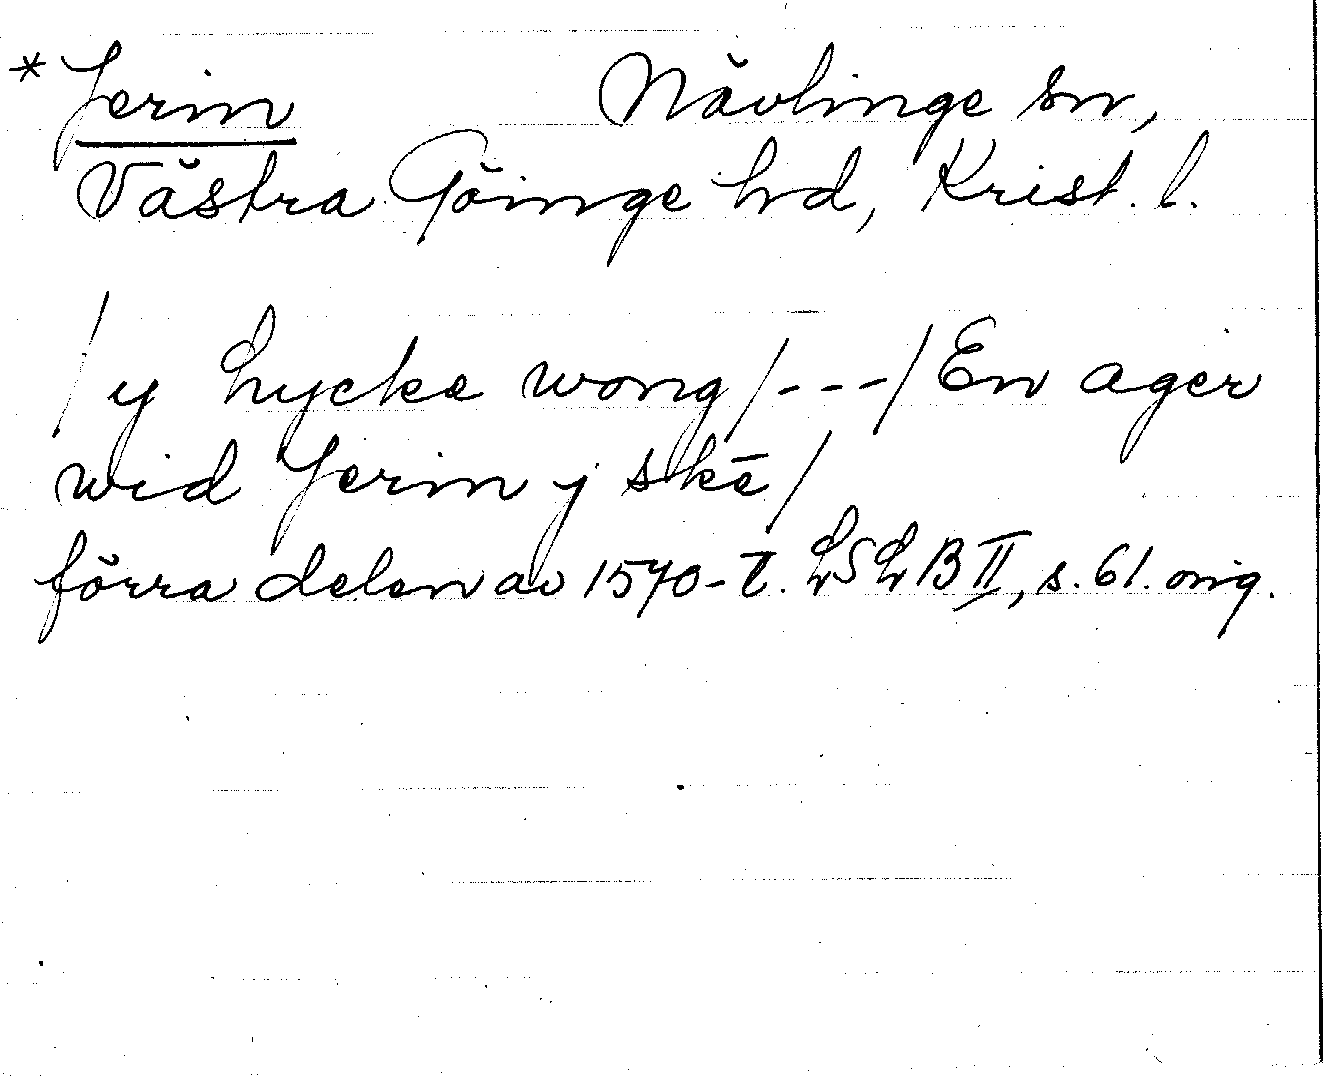 * Jerin Nävlinge sn,
Västra Göinge hd, Krist. l.
/y Lycke wong/---/En ager
wid Jerin y skē/
förra delen av 1570-t. LSLB II, s. 61. orig.